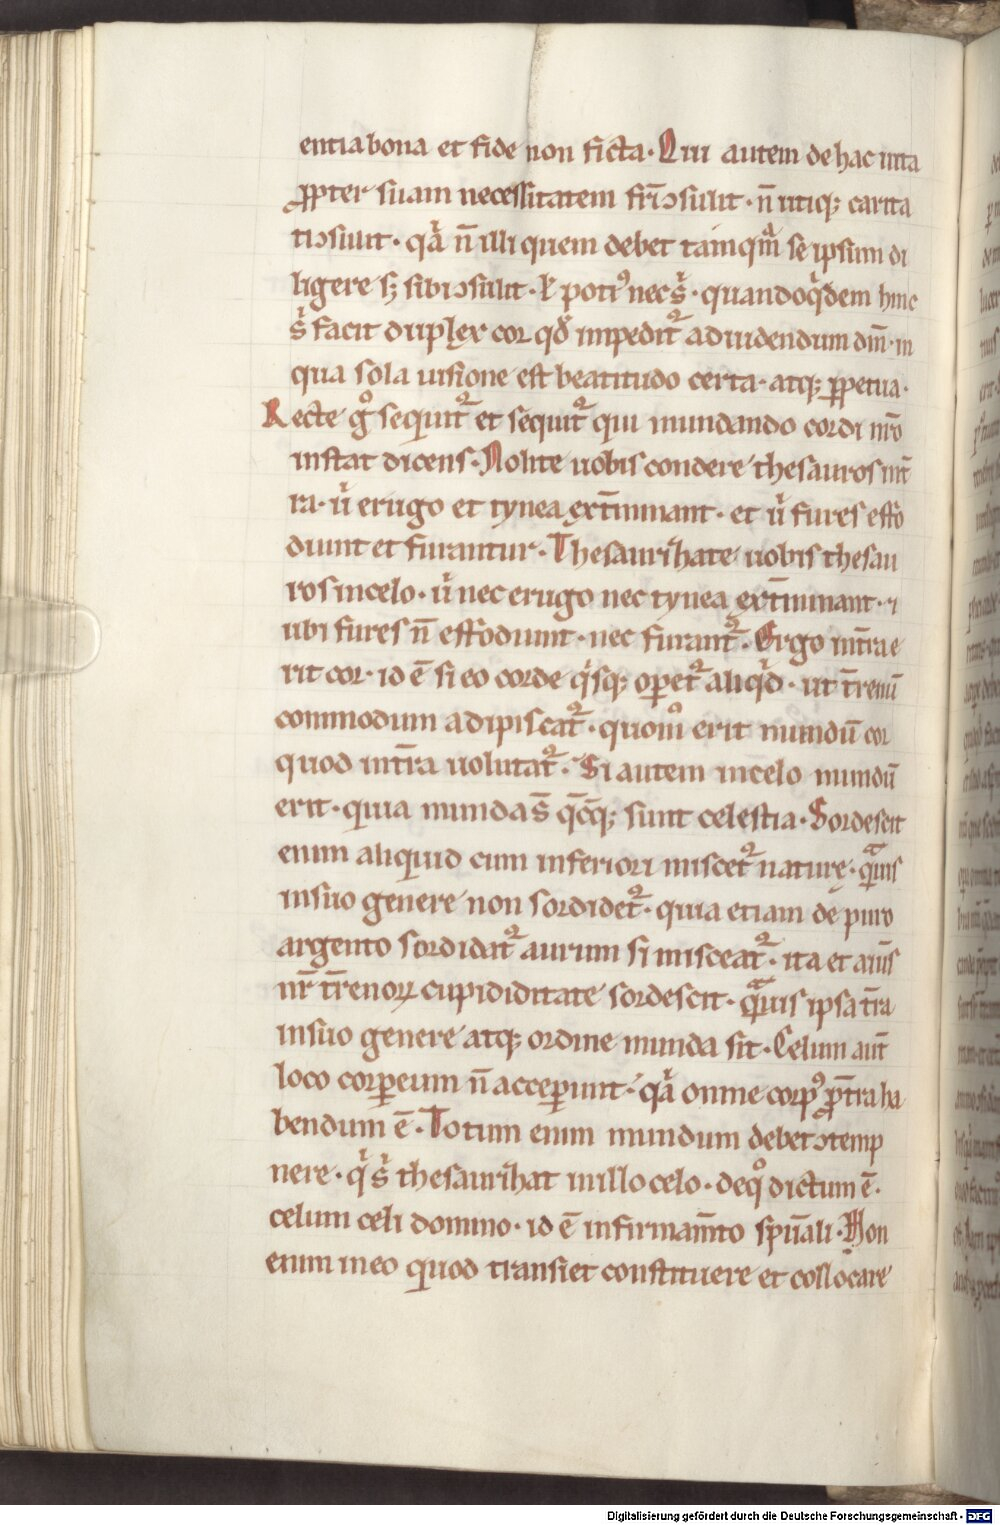 entia bona et fide non ficta. Qui autem de hac uita
ꝓpter suam necessitatem fr̄i ↄsulit. n̄ utiq; carita
ti ↄsulit. qͣ n̄ illi quem debet tamqͣm se ipsum di
ligere sꝫ sibi ↄsulit. ł poti᾽ nec sͥ. quandoqͥdem hinc
sͥ facit duplex cor qd̄ impedit᷑ ad uidendum dm̄. in
qua sola uisione est beatitudo certa. atq; ꝑpetua.
Recte gͦ sequit᷑ et sequit᷑ qui mundando cordi nr̄o
instat dicens. Nolite uobis condere thesauros int̄
ra. uͥ erugo et tynea ext̄minant. et uͥ fures effo
diunt et furantur. Thesaurihate uobis thesau
ros in celo. uͥ nec erugo nec tynea ext̄minant. ⁊
ubi fures n̄ effodiunt. nec furant᷑. Ergo in t̄ra e
rit cor. id ē si eo corde qͥsq; oꝑet᷑ aliqͥd. ut t̄renū
commodum adipiscat᷑. quomͦ erit mundū cor
quod in t̄ra uolutat᷑. Si autem in celo mundū
erit. quia munda s̄ q̄cq̄; sunt celestia. Sordescit
enim aliquid cum inferiori miscet᷑ naturę. qͣmuis
in suo genere non sordidet᷑. quia etiam de puro
argento sordidat᷑ aurum si misceat᷑. ita et aīus
nr̄ t̄renoꝝ cupididitate sordescit. qͣmuis ipsa t̄ra
in suo genere atq; ordine munda sit. Celum aut̄
loco corꝑeum n̄ acceꝑunt. qͣ omne corp᾽ ꝓ t̄ra ha
bendum ē. Totum enim mundum debet ↄtemp
nere. qͥ sͥ thesaurihat in illo celo. de qͦ dictum ē.
celum celi domino. id ē in firmam̄to spūali. Non
enim in eo quod transiet constituere et collocare
Digitalisierung gefördert durch die Deutsche Forschungsgemeinschaft - DFG